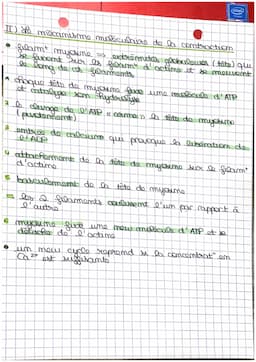 II) Le mécanisme moléculaire de la contraction
• filam^t myosine => extrémités globulaires (tête) qui
se fixent sur les filam^t d'actine et se meuvent
le long de ces filaments
• chaque tête de myosine fixe une molécule d'ATP
et catalyse son hydrolyse
le clivage de l'ATP "arme" la tête de myosine
(pivotement)
entrée de calcium qui provoque la libération de
l'ADP
attachement de la tête de myosine sur le filam^t
d'actine
basculement de la tête de myosine
les 2 filaments coulissent l'un par rapport à
l'autre
myosine fixe une new molécule d'ATP et se
détache de l'actine
• un new cycle reprend si la concentrat° en
Ca²⁺ est suffisante
intel